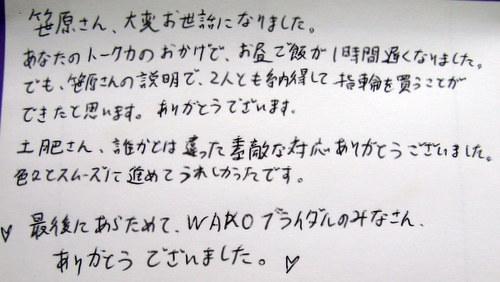 笹原さん、大変お世話になりました。
あなたのトーク力のおかげで、お昼ご飯が1時間遅くなりました。
でも、笹原さんの説明で、2人とも納得して指輪を買うことが
できたと思います。ありがとうございます。
土肥さん、誰かとは違った素敵な対応ありがとうございました。
色々とスムーズに進めてうれしかったです。
♡ 最後にあらためて、WAKOブライダルのみなさん、
ありがとうございました。♡